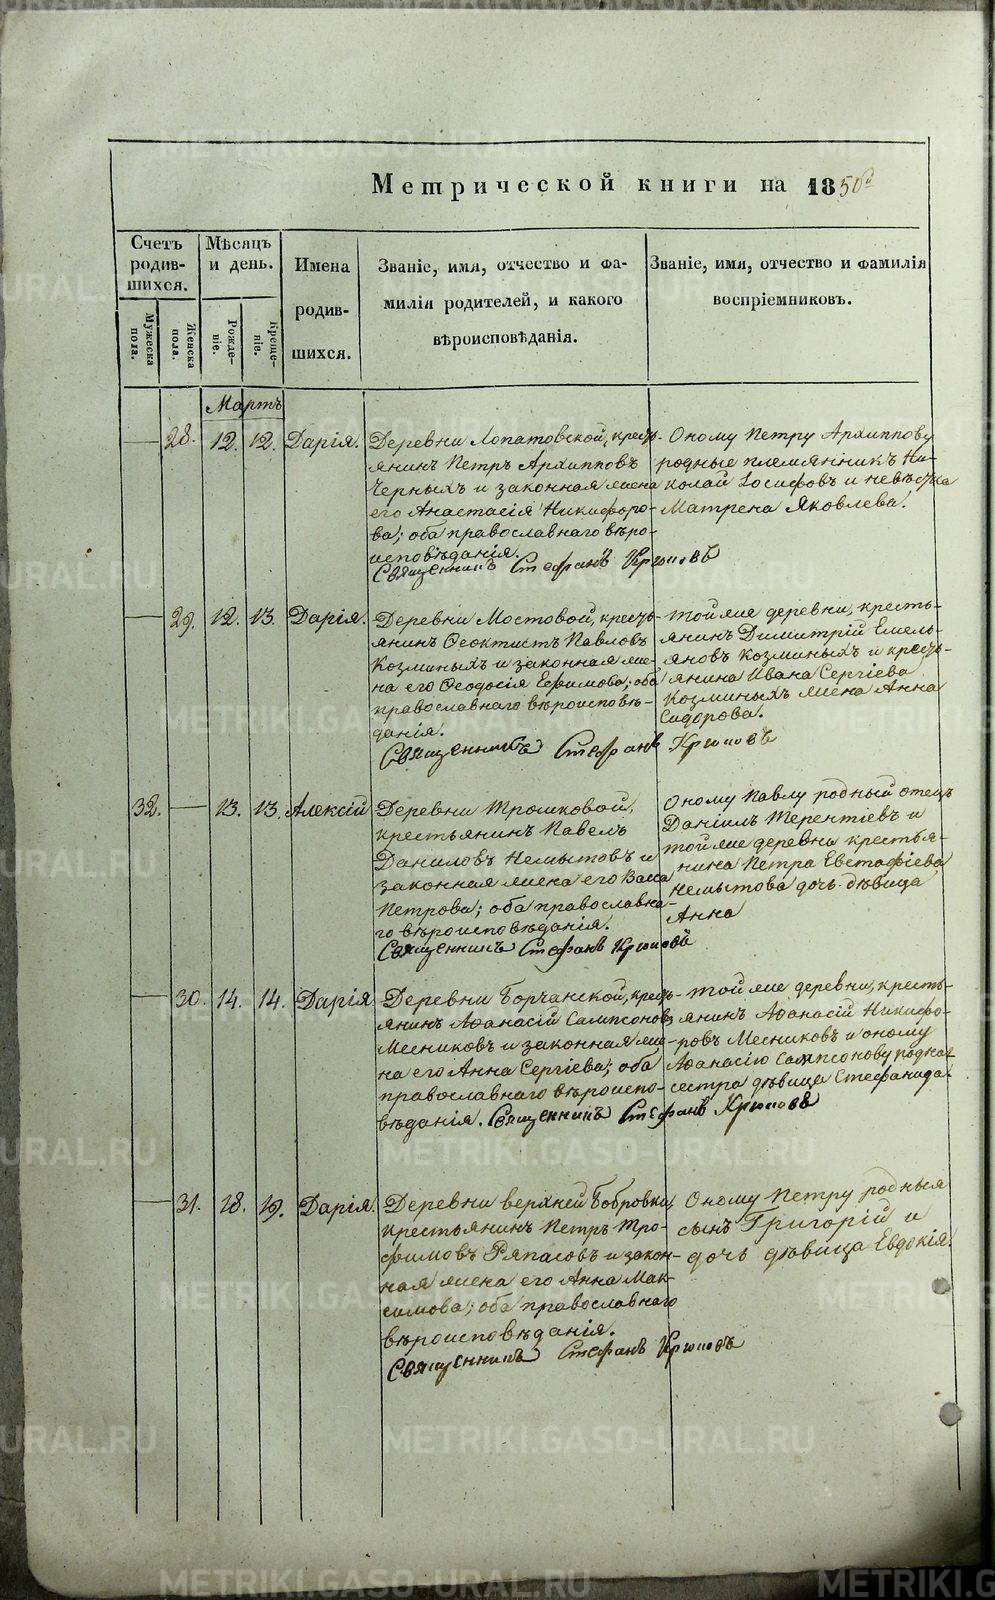 Метрической книги на 1850й
Счетъ родив-шихся.
Мужеска пола.
Женска пола.
Мѣсяцъ и день.
Рожде-ніе.
Креще-ніе.
Имена родив-шихся.
Званіе, имя, отчество и фа-
милія родителей, и какого
вѣроисповѣданія.
Званіе, имя, отчество и фамилія
воспріемниковъ.
Мартъ
28. 12. 12. Дарія.
Деревни Лопатовской, кресть-
янинъ Петръ Архипповъ
Черныхъ и законная жена
его Анастасія Никифоро-
ва; оба православнаго вѣро-
исповѣданія.
Оному Петру Архиппову
родные племянникъ Ни-
колай Іосифовъ и невѣстка
Матрена Яковлева.
Священникъ Стефанъ Крюковъ
29. 12. 13. Дарія.
Деревни Мостовой, кресть-
янинъ Ѳеоктистъ Павловъ
Козминыхъ и законная же-
на его Ѳеодосія Ефимова; оба
православнаго вѣроисповѣ-
данія.
Тойже деревни, кресть-
янинъ Димитрій Емель-
яновъ Козминыхъ и кресть-
янина Ивана Сергіева
Козминыхъ жена Анна
Сидорова.
Священникъ Стефанъ Крюковъ
32. 13. 13. Алексій
Деревни Трошковой,
крестьянинъ Павелъ
Даниловъ Немытовъ и
законная жена его Васса
Петрова; оба православна-
го вѣроисповѣданія.
Оному Павлу родный отецъ
Даніилъ Терентіевъ и
тойже деревни крестья-
нина Петра Евстафіева
Немытова дочь дѣвица
Анна
Священникъ Стефанъ Крюковъ
30. 14. 14. Дарія
Деревни Борчанской, кресть-
янинъ Аѳанасій Сампсоновъ
Месниковъ и законная же-
на его Анна Сергіева; оба
православнаго вѣроиспо-
вѣданія.
Тойже деревни, кресть-
янинъ Аѳанасій Никифо-
ровъ Месниковъ и оному
Аѳанасію Сампсонову родная
сестра дѣвица Стефанида.
Священникъ Стефанъ Крюковъ
31. 18. 19. Дарія.
Деревни верхней Бобровки,
крестьянинъ Петръ Тро-
фимовъ Ряпасовъ и закон-
ная жена его Анна Мак-
симова; оба православнаго
вѣроисповѣданія.
Оному Петру родныя
сынъ Григорій и
дочь дѣвица Евдокія.
Священникъ Стефанъ Крюковъ
METRIKI.GASO-URAL.RU